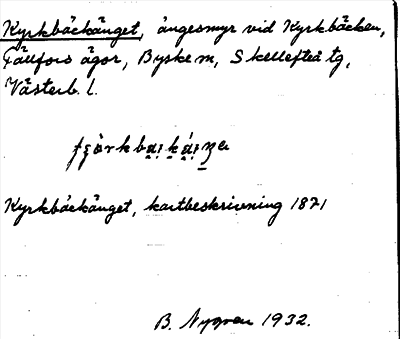 Kyrkbäckänget, ängesmyr vid Kyrkbäcken,
Fällfors ägor, Byske sn, Skellefteå tg,
Västerb. l.
Kyrkbäckänget, kartbeskrivning 1871
B. Nygren 1932.